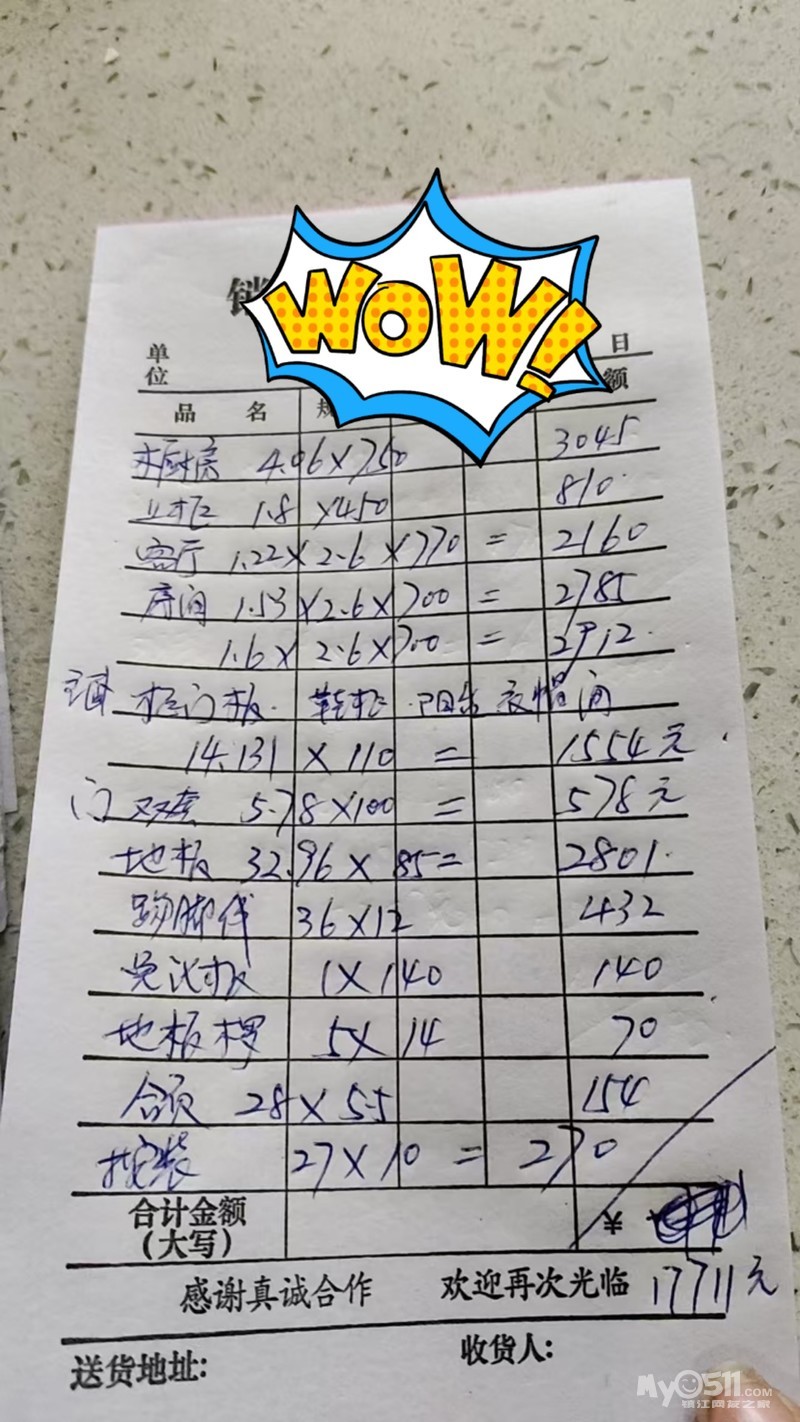 销
WOW!
单位 日
品 名 规 额
厨房 4.06×750 3045
立柜 1.8×450 810
客厅 1.22×2.6×770 = 2160
房间 1.53×2.6×700 = 2785
1.6×2.6×700 = 2912
柜门板 鞋柜 阳台 衣帽间
14.131×110 = 1554元
门 双套 5.78×100 = 578元
地板 32.96×85= 2801
踢脚线 36×12 432
免漆板 1×140 140
地板 5×14 70
28×5.5 154
安装 27×10 = 270
合计金额（大写） ¥
感谢真诚合作 欢迎再次光临 17711元
送货地址: 收货人:
My0511.COM
镇江网友之家